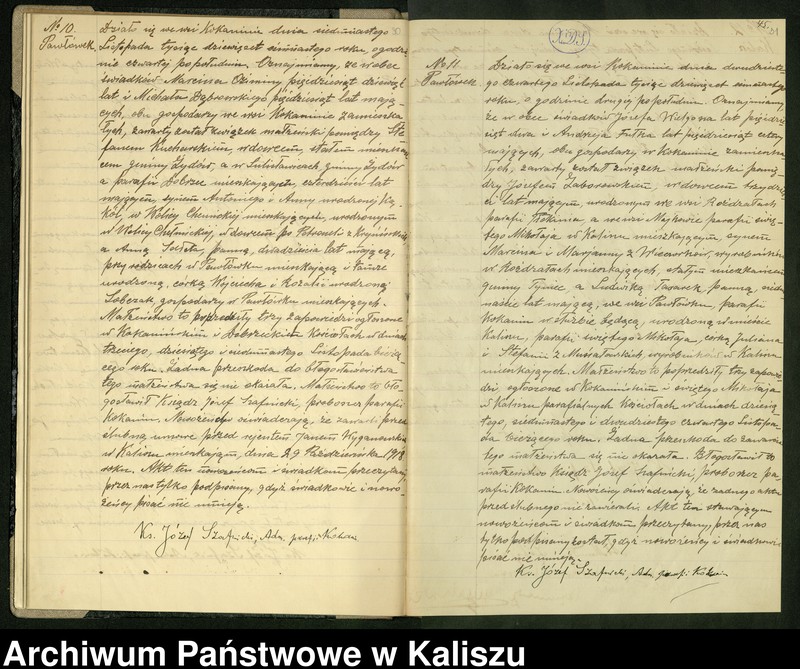 № 10.
Pawłówek.
Działo się we wsi Kokaninie dnia siedmnastego
Listopada tysiąc dziewięćset ośmnastego roku, o godzi-
nie czwartej po południu. Oznajmiamy, że w obec
świadków Marcina pięćdziesiąt dziewięć
lat i Michała Dąbrowskiego pięćdziesiąt lat mają-
cych, obu gospodarzy we wsi Kokaninie zamieszka-
łych, zawarty został związek małżeński pomiędzy Ste-
fanem Kucharskim, wdowcem, stałym mieszkań-
cem gminy Żydów, a w gminy Żydów
a parafii Dobrzec mieszkającym, czterdzieści lat
mającym, synem Antoniego i Anny urodzonej Ką-
kol, w Wolicy mieszkających, urodzonym
w Wolicy wdowcem po Petroneli z
a Anną panną, dwadzieścia lat mającą,
przy rodzicach w Pawłówku mieszkającą i tamże
urodzoną, córką Wojciecha i Rozalii urodzonej
Sobczak, gospodarzy w Pawłówku mieszkających.
Małżeństwo to poprzedziły trzy zapowiedzi ogłoszone
w Kokanińskim i Dobrzeckim Kościołach w dniach
trzecim, dziesiątego i siedmnastego Listopada bieżą-
cego roku. Żadna przeszkoda do błogosławieństwa
tego małżeństwa się nie okazała. Małżeństwo to bło-
gosławił Ksiądz Józef Szafnicki, proboszcz parafii
Kokanin. Nowożeńcy oświadczają, że zawarli przed-
ślubną umowę przed rejentem Janem Wyganowskim
w Kaliszu mieszkającym, dnia 29 Października 1918
roku. Akt ten nowożeńcom i świadkom przeczytany,
przez nas tylko podpisany, gdyż świadkowie i nowo-
żeńcy pisać nie umieją.
Ks. Józef Szafnicki, Adm. paraf. Kokan
45.
№ 11.
Pawłówek.
Działo się we wsi Kokaninie dnia dwudzieste-
go czwartego Listopada tysiąc dziewięćset ośmnastego
roku, o godzinie drugiej po południu. Oznajmiamy,
że w obec świadków Józefa lat pięćdzie-
siąt dwa i Andrzeja lat pięćdziesiąt cztery
mających, obu gospodarzy w Kokaninie zamieszka-
łych, zawarty został związek małżeński pomię-
dzy Józefem Zaborowskim, wdowcem, trzydzie-
ści lat mającym, urodzonym we wsi
parafii a we wsi Majkowie parafii świę-
tego Mikołaja w Kaliszu mieszkającym, synem
Marcina i Maryanny z wyrobników
w mieszkających, stałym mieszkańcem
gminy Tyniec, a Ludwiką panną, sied-
naście lat mającą, we wsi Pawłówku, parafii
Kokanin w służbie będącą, urodzoną w mieście
Kaliszu, parafii świętego Mikołaja, córką Juliana
i Stefanii z wyrobników w Kaliszu
mieszkających. Małżeństwo to poprzedziły trzy zapowie-
dzi, ogłoszone w Kokanińskim i świętego Mikołaja
w Kaliszu parafialnych Kościołach w dniach dziesią-
tego, siedmnastego i dwudziestego czwartego Listopa-
da bieżącego roku. Żadna przeszkoda do zawarcia
tego małżeństwa się nie okazała. Błogosławił to
małżeństwo Ksiądz Józef Szafnicki, proboszcz pa-
rafii Kokanin. Nowożeńcy oświadczają, że żadnego aktu
przedślubnego nie zawierali. Akt ten stawającym
nowożeńcom i świadkom przeczytany, przez nas
tylko podpisany został, gdyż nowożeńcy i świadkowie
pisać nie umieją.
Ks. Józef Szafnicki, Adm. paraf. Kokan
Archiwum Państwowe w Kaliszu